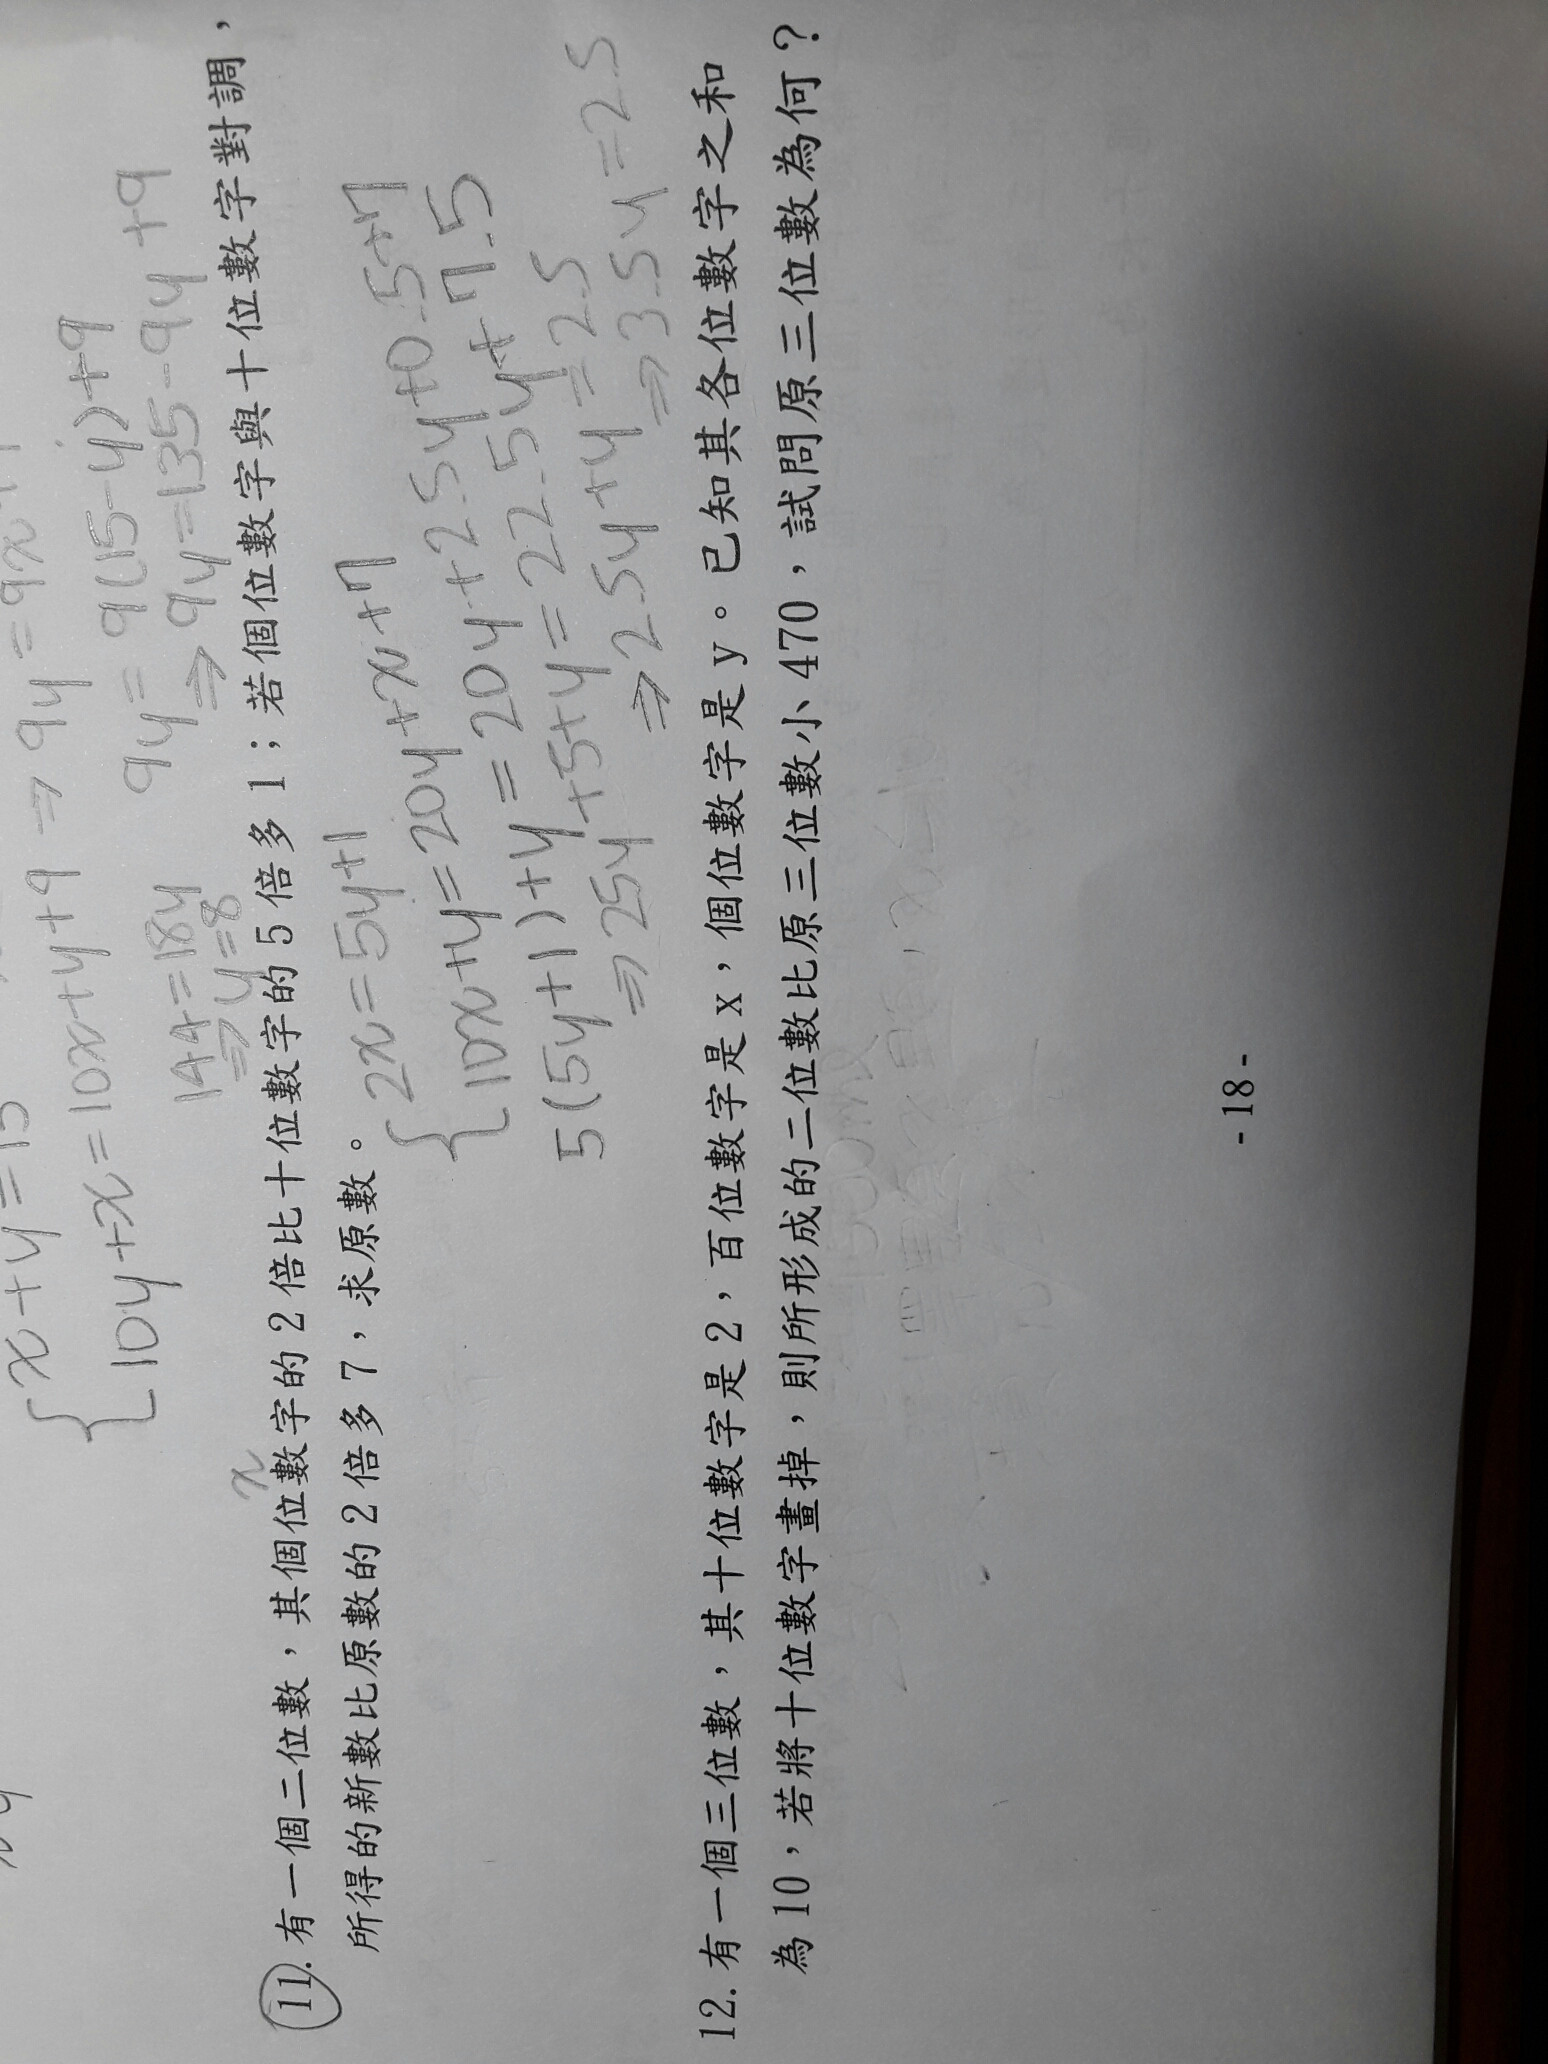 x+y=15
10y+x=10x+y+9 ⇒ 9y=9x+
9y=9(15-y)+9
⇒ 9y=135-9y+9
144=18y
⇒ y=8
x
11. 有一個二位數，其個位數字的2倍比十位數字的5倍多1；若個位數字與十位數字對調，
所得的新數比原數的2倍多7，求原數。
2x=5y+1
10x+y=20y+2x+7
10x+y=20y+x+7
=20y+2.5y+0.5+7
5(5y+1)+y=20y+2.5y+7.5
⇒25y+5+y=22.5y+7.5
⇒2.5y+y=2.5
⇒3.5y=2.5
12. 有一個三位數，其十位數字是2，百位數字是x，個位數字是y。已知其各位數字之和
為10，若將十位數字畫掉，則所形成的二位數比原三位數小470，試問原三位數為何？
-18-